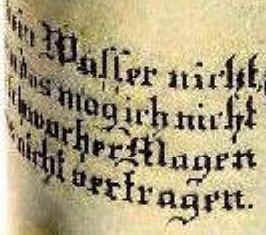 ein Wasser nicht,
das mag ich nicht
schwacher Magen
nicht vertragen.